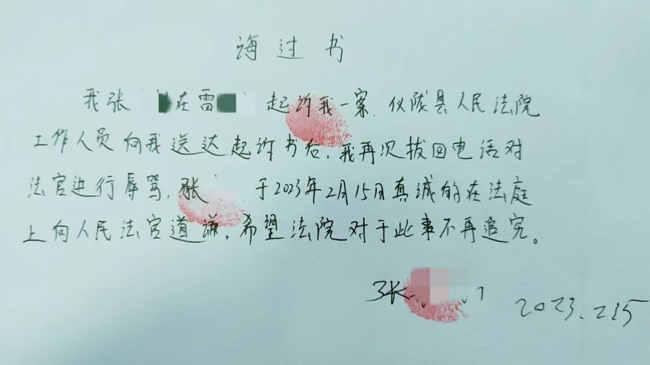 悔过书
我张 在雷 起诉我一案,仪陇县人民法院
工作人员向我送达起诉书后,我再次拔回电话对
法官进行辱骂,张 于2023年2月15日真诚的在法庭
上向人民法官道谦,希望法院对于此事不再追究。
张
2023.2.15